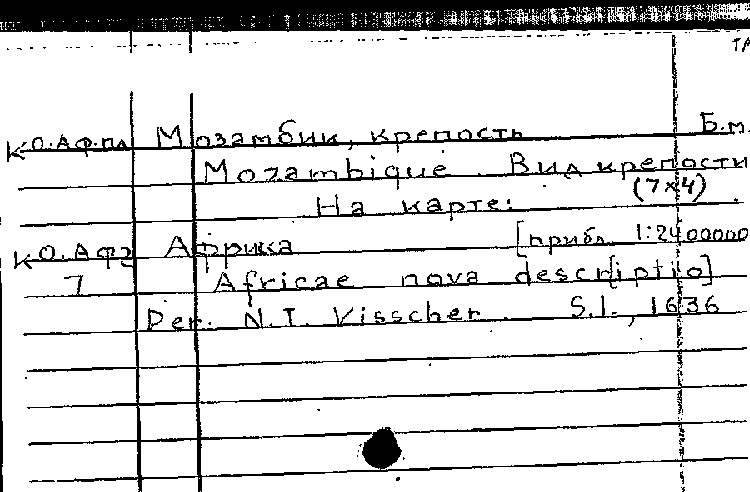 К.О.Аф.пл Мозамбик, крепость Б.м.
Mozambique. Вид крепости
(7×4)
На карте:
К О. Аф2 Африка [прибл. 1:2400000
7 Africae nova descr[iptio]
Per. N.I. Visscher. S.l., 1636